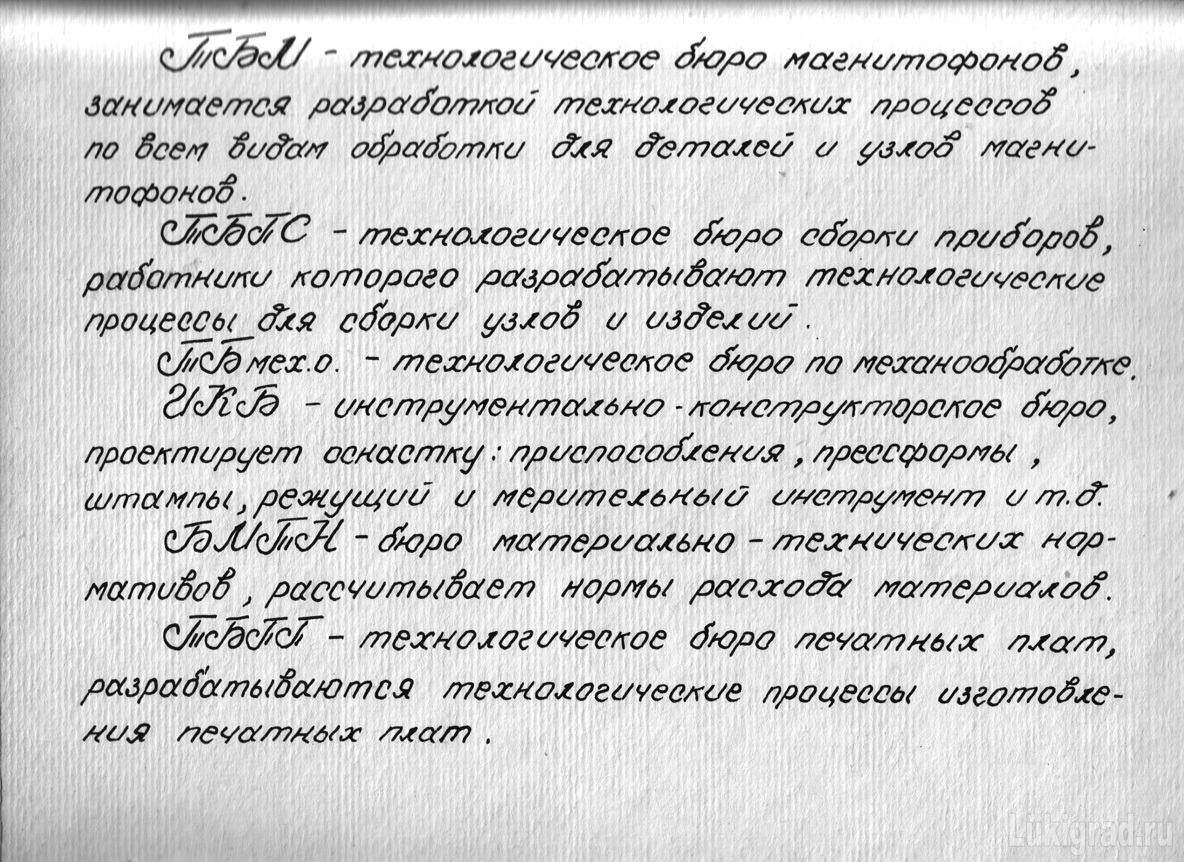 ТБМ - технологическое бюро магнитофонов,
занимается разработкой технологических процессов
по всем видам обработки для деталей и узлов магни-
тофонов.
ТБПС - технологическое бюро сборки приборов,
работники которого разрабатывают технологические
процессы для сборки узлов и изделий.
ТБмех.о. - технологическое бюро по механообработке.
ИКБ - инструментально-конструкторское бюро,
проектирует оснастку: приспособления, прессформы,
штампы, режущий и мерительный инструмент и т.д.
БМТН - бюро материально-технических нор-
мативов, рассчитывает нормы расхода материалов.
ТБПП - технологическое бюро печатных плат,
разрабатываются технологические процессы изготовле-
ния печатных плат.
Lukigrad.ru